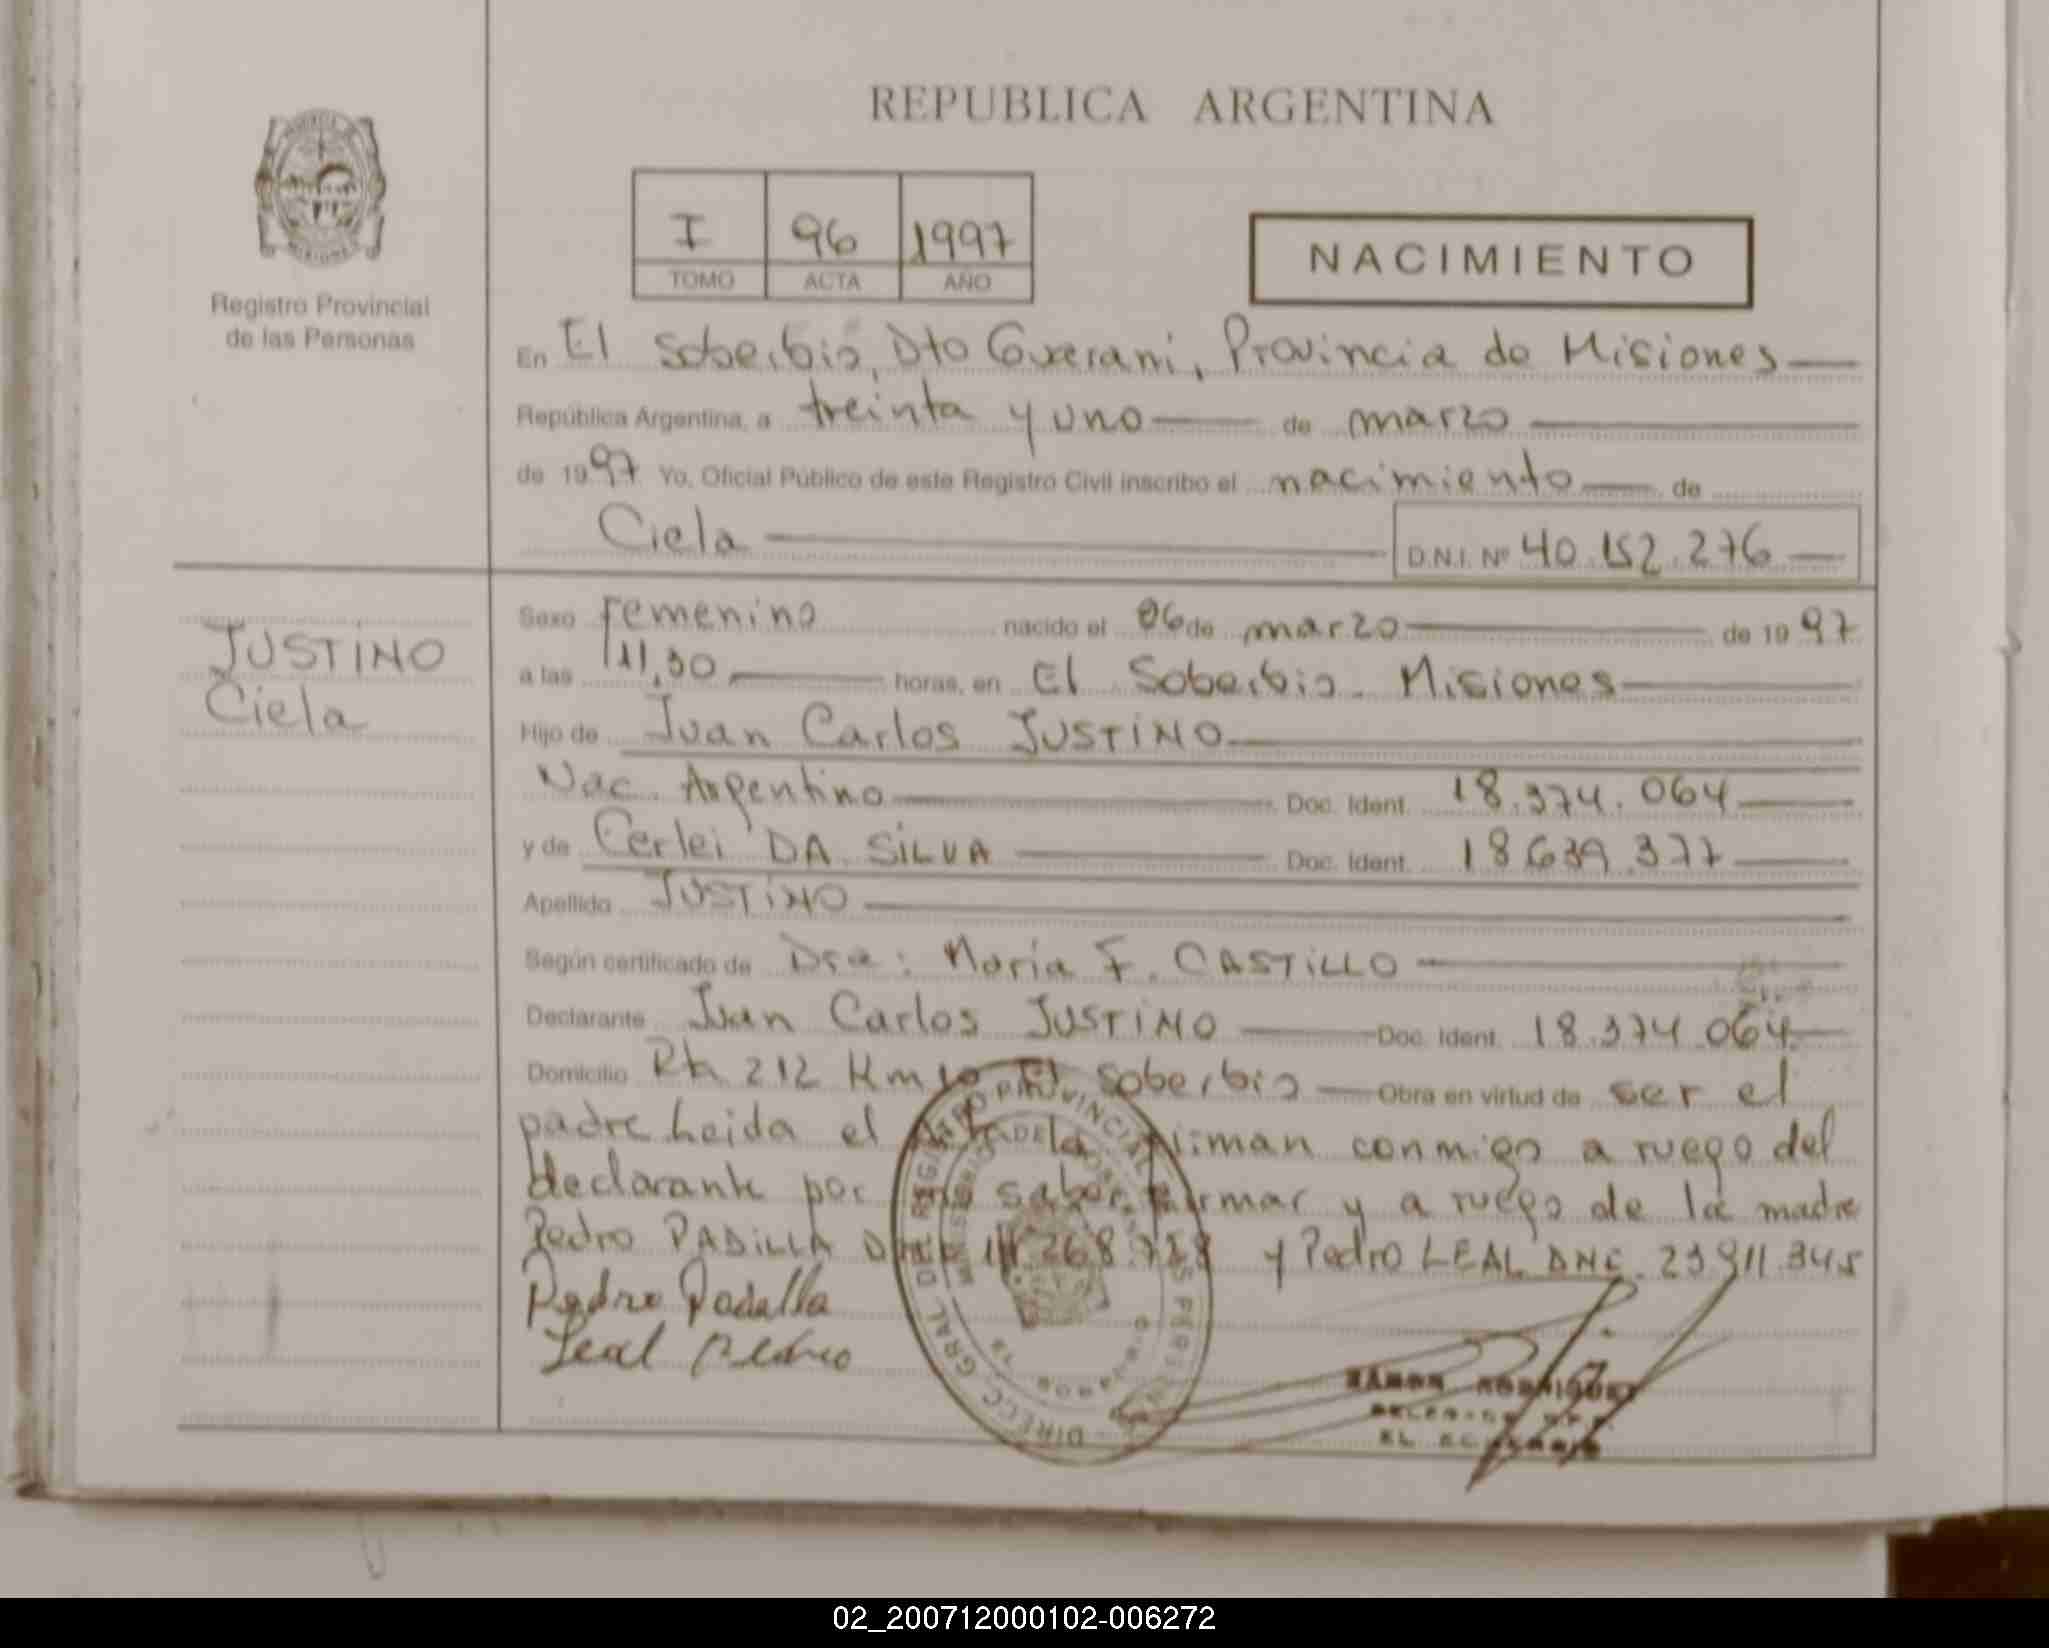 REPUBLICA ARGENTINA
Registro Provincial
de las Personas
I 96 1997
TOMO ACTA AÑO
NACIMIENTO
En El Soberbio, Dto Guarani, Provincia de Misiones
República Argentina, a treinta y uno de marzo
de 1997 Yo, Oficial Público de este Registro Civil inscribo el nacimiento de
Ciela D.N.I. Nº 40.152.276
JUSTINO
Ciela
Sexo Femenino nacido el 06 de marzo de 1997
a las 11,30 horas, en El Soberbio. Misiones
Hijo de Juan Carlos JUSTINO
Nac. Argentino Doc. Ident. 18.374.064
y de Cerlei DA SILVA Doc. Ident. 18.639.377
Apellido JUSTINO
Según certificado de Dra: María F. CASTILLO
Declarante Juan Carlos JUSTINO Doc. Ident. 18.374.064
Domicilio Rta 212 Km 10 El Soberbio Obra en virtud de ser el
padre. Leida el Acta la firman conmigo a ruego del
declarante por no saber firmar y a ruego de la madre
Pedro PADILLA 268.718 y Pedro LEAL DNI. 23.911.345
Pedro Padilla
Leal Pedro
DIRECC. GRAL. DEL REGISTRO PROVINCIAL DE LAS PERSONAS
RAMON RODRIGUEZ
DELEGADO R.P.P.
EL SOBERBIO
02_200712000102-006272